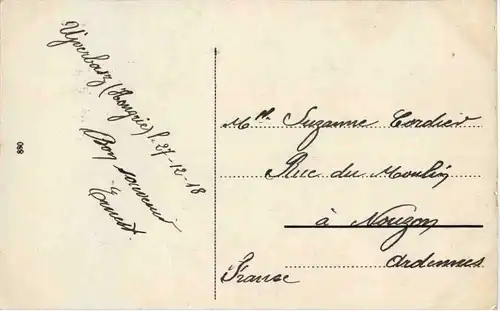 Ujverbasz (Hongrie) l. 27-12-18
Bon souvenir
Ernest.
Mlle Suzanne Cordier
Rue du Moulin
à Nouzon
Ardennes
France